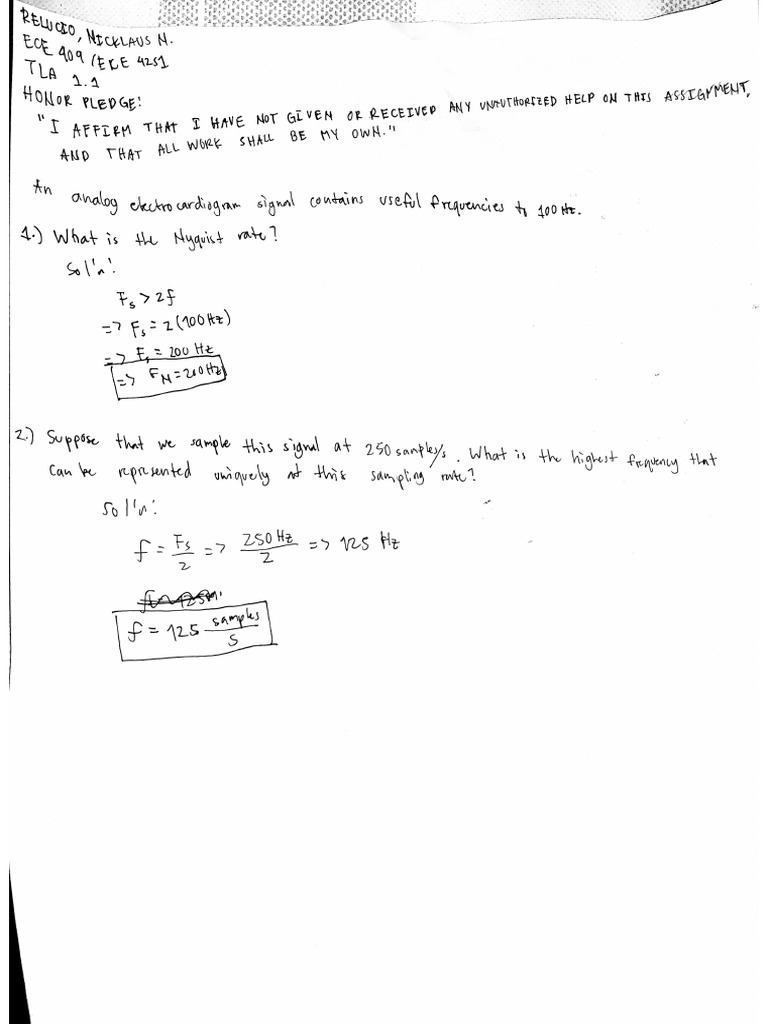 RELUCIO, NICKLAUS N.
ECE 409 / ECE 4251
TLA 1.1
HONOR PLEDGE:
"I AFFIRM THAT I HAVE NOT GIVEN OR RECEIVED ANY UNAUTHORIZED HELP ON THIS ASSIGNMENT,
AND THAT ALL WORK SHALL BE MY OWN."
An analog electrocardiogram signal contains useful frequencies to 100 Hz.
1.) What is the Nyquist rate?
Sol'n:
Fs > 2f
=> Fs = 2(100Hz)
=> Fs = 200 Hz
=> FN = 200Hz
2.) Suppose that we sample this signal at 250 samples/s. What is the highest frequency that
can be represented uniquely at this sampling rate?
Sol'n:
f = Fs/2 => 250 Hz/2 => 125 Hz
f = 125 samples/s